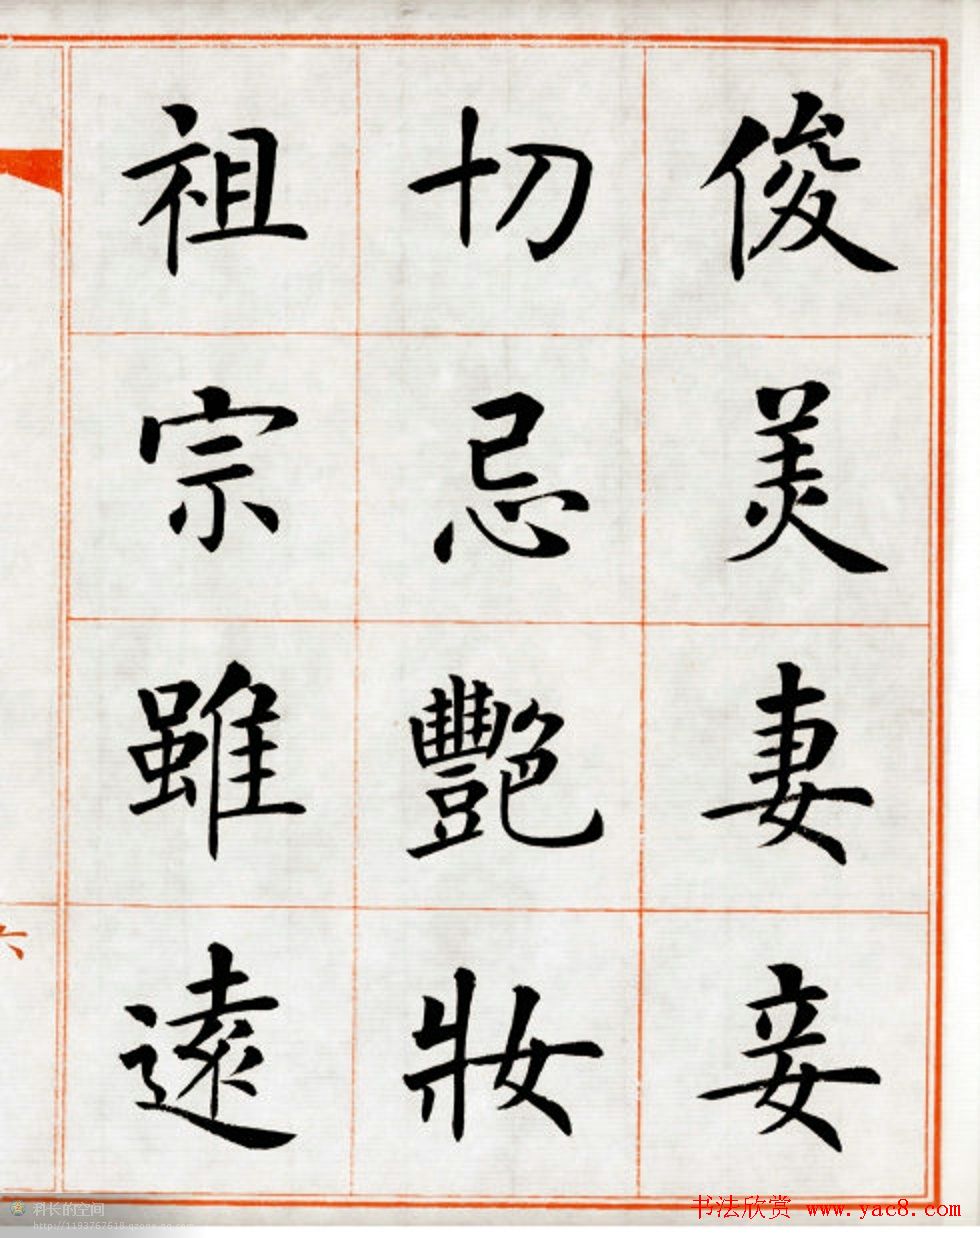 俊美妻妾
切忌艷妝
祖宗雖遠
六
科长的空间
书法欣赏 www.yac8.com